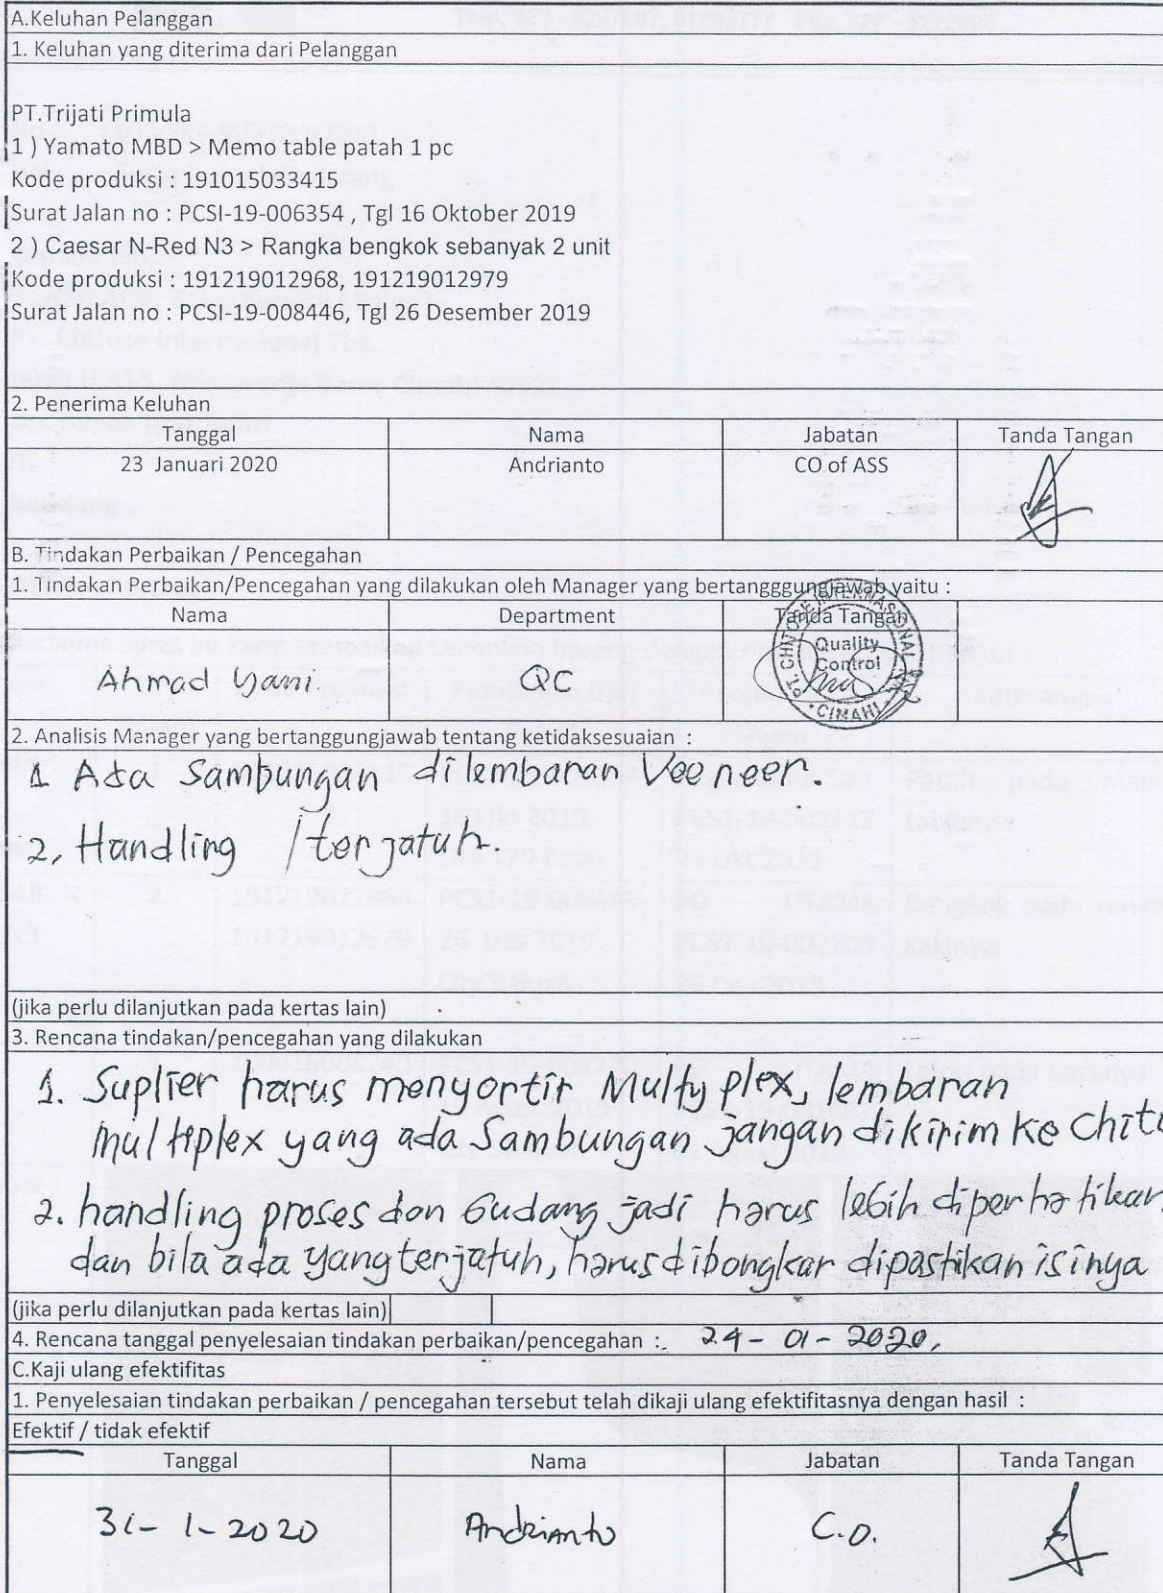 A.Keluhan Pelanggan
1. Keluhan yang diterima dari Pelanggan
PT.Trijati Primula
1 ) Yamato MBD > Memo table patah 1 pc
Kode produksi : 191015033415
Surat Jalan no : PCSI-19-006354 , Tgl 16 Oktober 2019
2 ) Caesar N-Red N3 > Rangka bengkok sebanyak 2 unit
Kode produksi : 191219012968, 191219012979
Surat Jalan no : PCSI-19-008446, Tgl 26 Desember 2019
2. Penerima Keluhan
Tanggal Nama Jabatan Tanda Tangan
23 Januari 2020 Andrianto CO of ASS
B. Tindakan Perbaikan / Pencegahan
1. Tindakan Perbaikan/Pencegahan yang dilakukan oleh Manager yang bertangggungjawab yaitu :
Nama Department Tanda Tangan
Ahmad Yani QC
PT. CHITOSE INTERNASIONAL
Quality
Control
CIMAHI
2. Analisis Manager yang bertanggungjawab tentang ketidaksesuaian :
1. Ada Sambungan dilembaran Veeneer.
2. Handling / terjatuh.
(jika perlu dilanjutkan pada kertas lain)
3. Rencana tindakan/pencegahan yang dilakukan
1. Suplier harus menyortir Multy plex, lembaran
multiplex yang ada Sambungan jangan dikirim ke Chito
2. handling proses dan Gudang jadi harus lebih diperhatikan
dan bila ada yang terjatuh, harus dibongkar dipastikan isinya
(jika perlu dilanjutkan pada kertas lain)
4. Rencana tanggal penyelesaian tindakan perbaikan/pencegahan : 24 - 01 - 2020,
C.Kaji ulang efektifitas
1. Penyelesaian tindakan perbaikan / pencegahan tersebut telah dikaji ulang efektifitasnya dengan hasil :
Efektif / tidak efektif
Tanggal Nama Jabatan Tanda Tangan
31- 1-2020 Andrianto C.O.